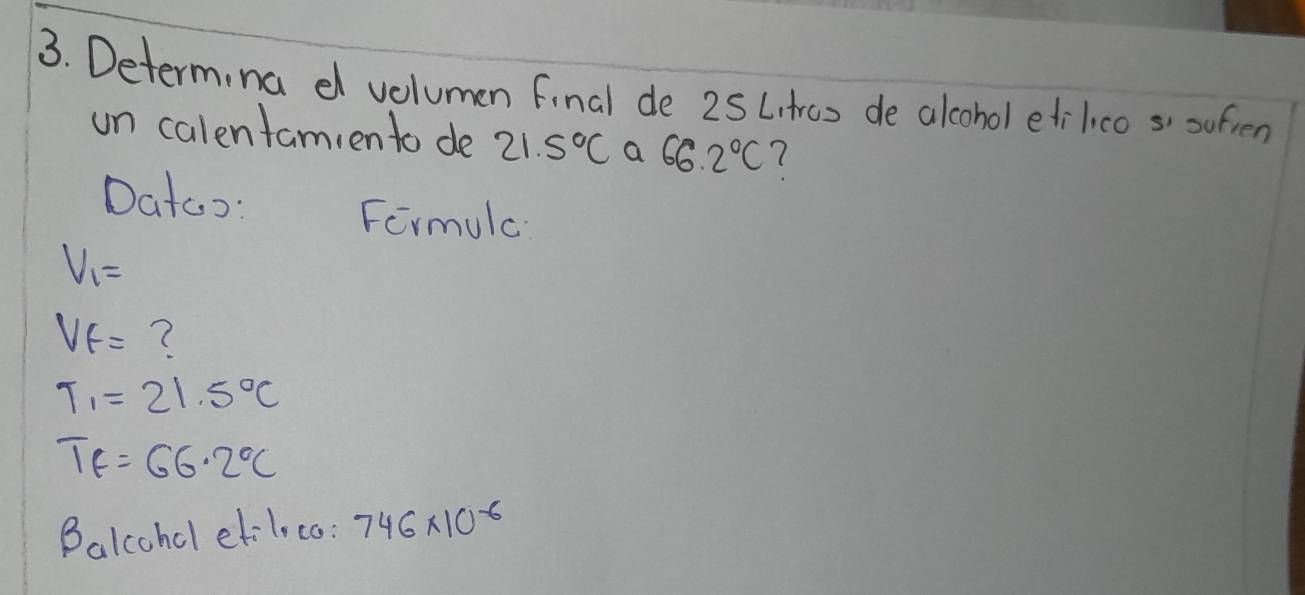 3. Determina el volumen final de 25 Litros de alcohol etilico si sufren
un calentamiento de 21.5°C a 66.2°C?
Datos: Fórmula:
Vi=
Vf= ?
Ti= 21.5°C
Tf= 66.2°C
Balcohol etilico: 746x10⁻⁶